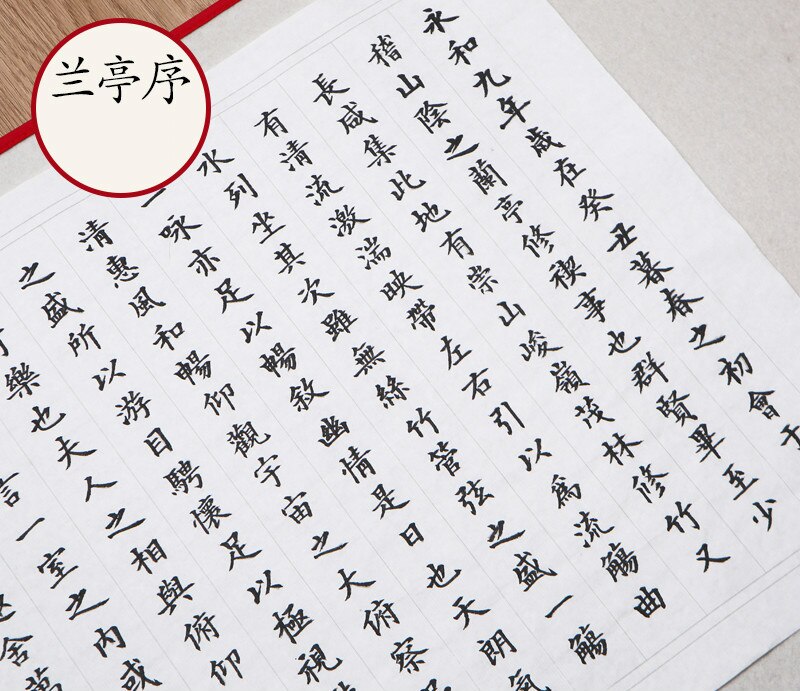 兰亭序
永和九年歲在癸丑暮春之初會于
稽山陰之蘭亭修禊事也群賢畢至少
長咸集此地有崇山峻嶺茂林修竹又
有清流激湍映帶左右引以爲流觴曲
水列坐其次雖無絲竹管弦之盛一觴
一咏亦足以暢敘幽情是日也天朗氣
清惠風和暢仰觀宇宙之大俯察
之盛所以游目騁懷足以極視
樂也夫人之相與俯仰
言一室之内或
舍萬